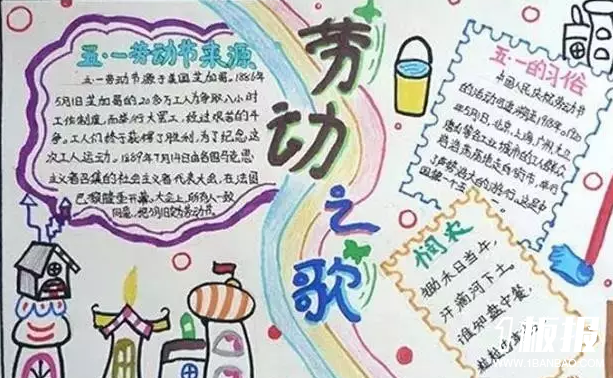 五·一劳动节来源
五·一劳动节源于美国芝加哥。1886年
5月1日芝加哥的20多万工人为争取八小时
工作制度,而举行大罢工,经过艰苦的斗
争。工人们终于获得了胜利,为了纪念这
次工人运动。1889年7月14日由各国马克思
主义者召集的社会主义者代表大会,在法国
巴黎隆重开幕。大会上,所有人一致
同意,把5月1日为劳动节。
劳动之歌
五·一的习俗
中国人民庆祝劳动节
的活动可追溯至1918年。
年5月1日,北京,上海,广州,九江
唐山等各工业城市的工人群众
浩浩荡荡走向街市,举行
了声势浩大的游行。这是中
国第一个五一
悯农
锄禾日当午,
汗滴禾下土。
谁知盘中餐,
粒粒
1板报
WWW.1BANBAO.COM